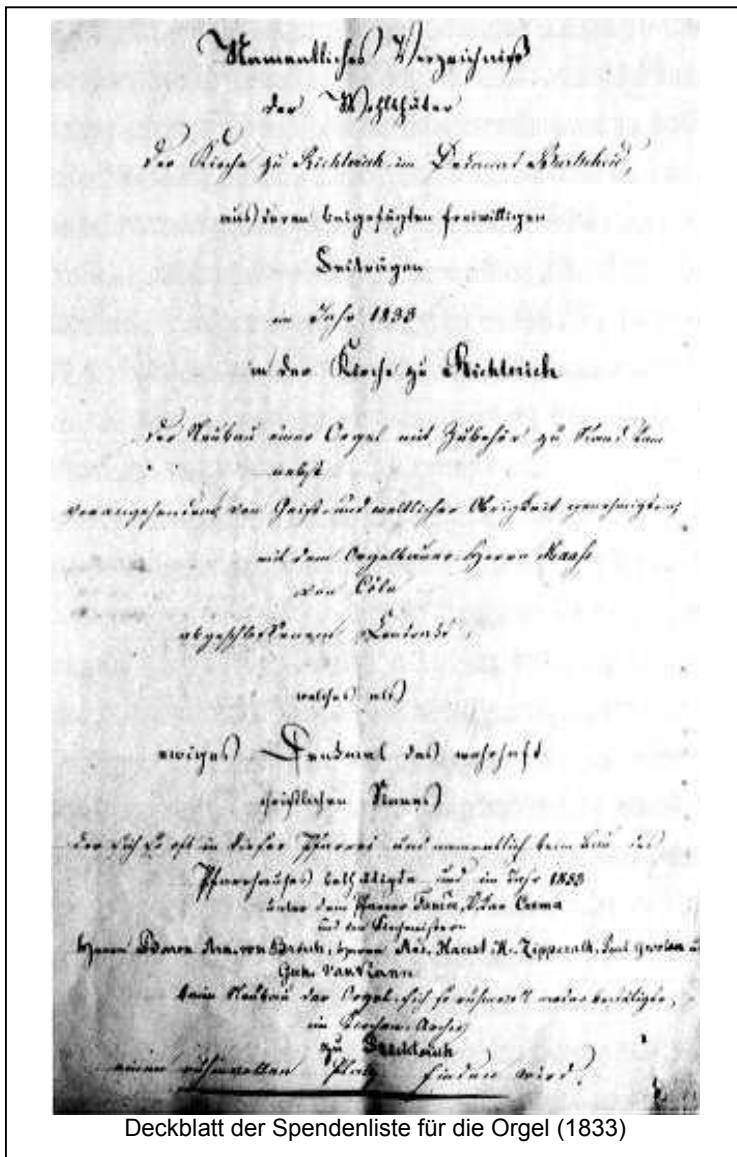 Namentliches Verzeichniß
der Wohlthäter
der Kirche zu Richterich im Decanat Burtscheid,
aus deren beigefügten freiwilligen
Beiträgen
im Jahr 1833
in der Kirche zu Richterich
der Neubau einer Orgel mit Zubehör zu Stand kam
nebst
vorangehendem von Geist- und weltlicher Obrigkeit genehmigten,
mit dem Orgelbauer Herrn Maaß
von Cöln
abgeschlossenem Contract,
welches als
ewiges Denkmal des wahrhaft
christlichen Sinnes
der sich so oft in dieser Pfarrei und namentlich beim Bau des
Pfarrhauses bethätigte und im Jahr 1833
unter dem Pfarrer Vicar Cremer
und den Kirchmeistern
Herrn Baron Arn. von Broich, Herrn M. Zipperath,
beim Neubau der Orgel sich so ruhmvoll wieder bethätigte,
im Kirchen-Archiv
zu Richterich
einen ruhmvollen Platz finden wird.
Deckblatt der Spendenliste für die Orgel (1833)